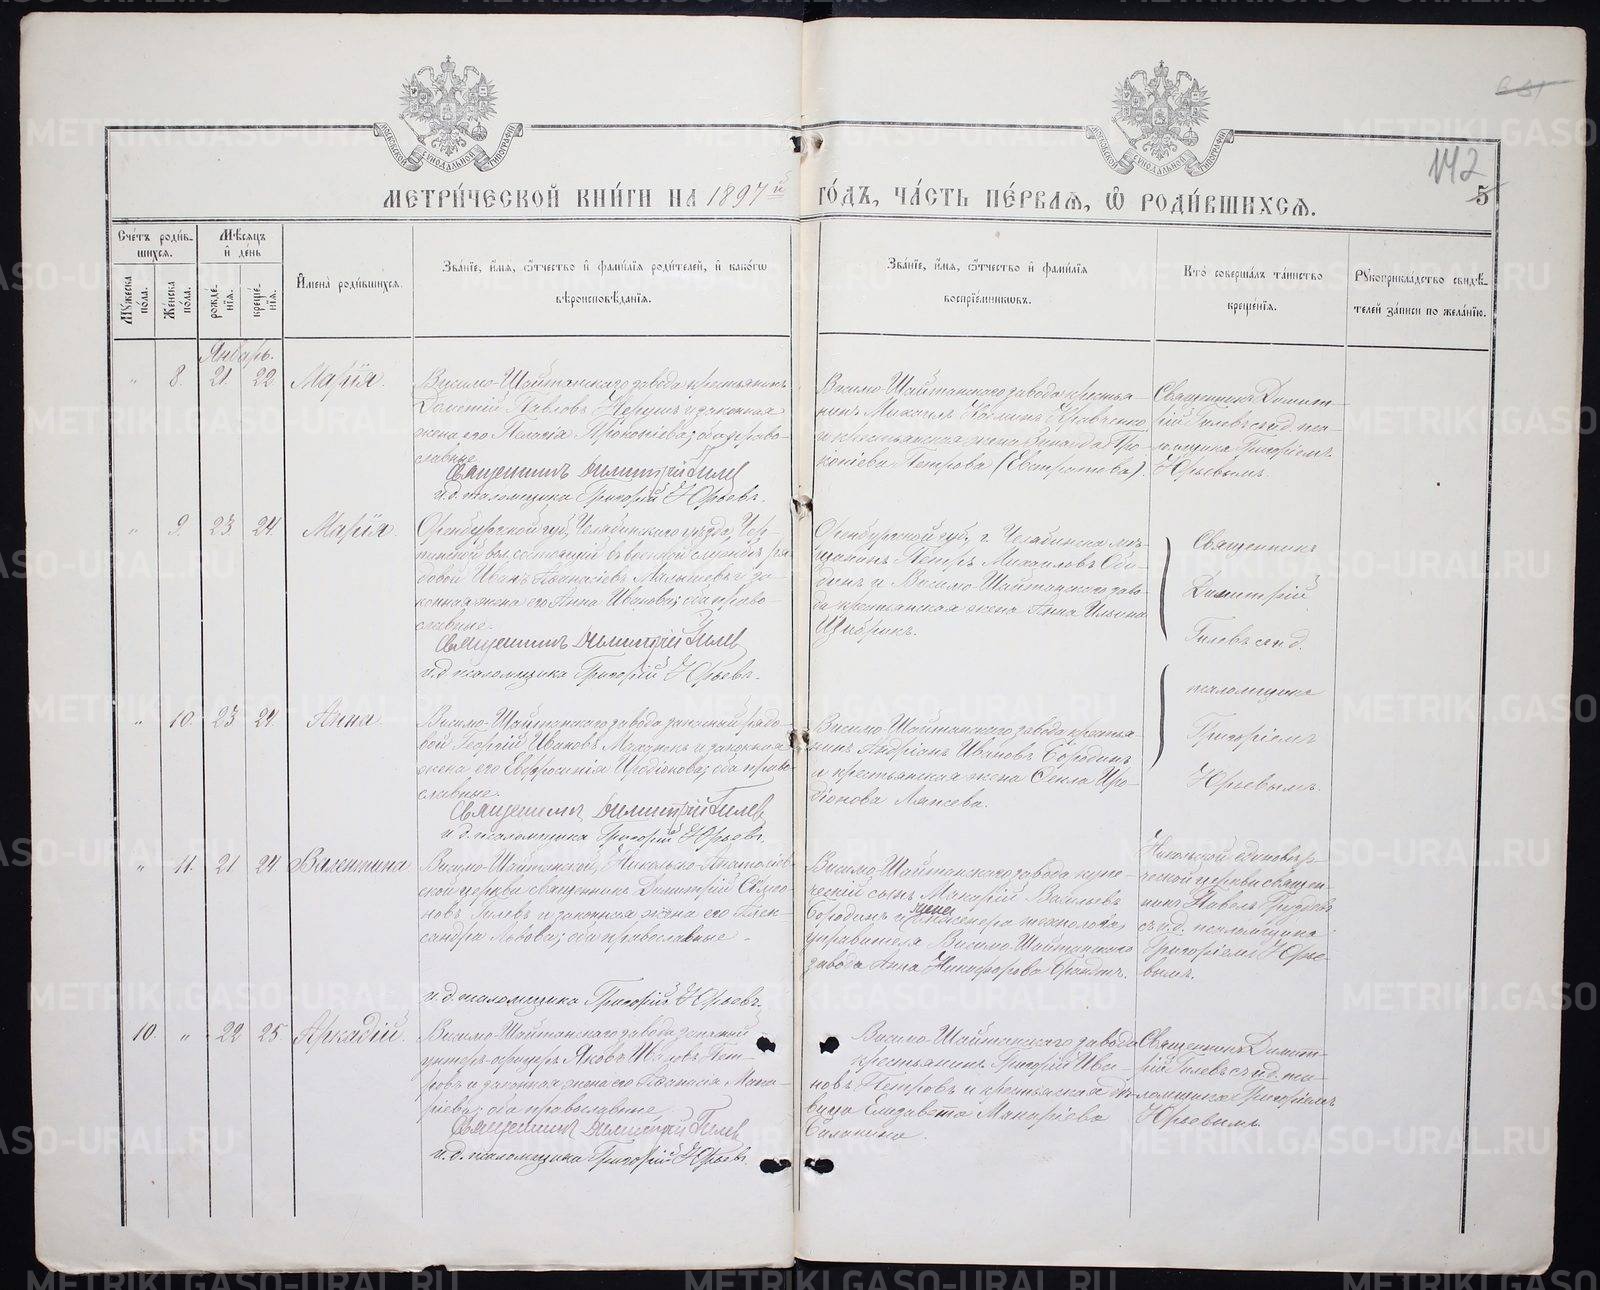 МОСКОВСКОЙ СѴНОДАЛЬНОЙ ТИПОГРАФІИ
МОСКОВСКОЙ СѴНОДАЛЬНОЙ ТИПОГРАФІИ
142
5
МЕТРИ́ЧЕСКОЙ КНИ́ГИ НА 1897й ГО́ДЪ, ЧА́СТЬ ПЕ́РВАЯ, Ѡ РОДИ́ВШИХСЯ.
Сче́тъ роди́вшихся.
Мѣ́сяцъ и де́нь
Му́жеска по́ла.
Же́нска по́ла.
рожде́нія.
креще́нія.
Имена̀ роди́вшихся.
Зва́ніе, и́мя, ѻ́тчество и фами́лія роди́телей, и како́гѡ вѣроисповѣ́данія.
Зва́ніе, и́мя, ѻ́тчество и фами́лія воспріе́мниковъ.
Кто̀ соверша́лъ та́инство креще́нія.
Рукоприкла́дство свидѣ́телей за́писи по жела́нію.
Январь.
" 8. 21. 22 Марія.
Висимо-Шайтанскаго завода крестьянинъ
Павловъ и законная
жена его Пелагія Прокопіева; оба православные
Священникъ Димитрій Гилев
и.д. псаломщика Григорій Юрьевъ.
Висимо-Шайтанскаго завода крестьянинъ Михаилъ Кравченко
и крестьянская жена Прокопіева Петрова (Евстратова).
Священникъ Димитрій Гилевъ съ и.д. псаломщика Григоріемъ Юрьевымъ.
" 9. 23 24. Марія.
Оренбургской губ., Челябинскаго уѣзда,
вол. состоящій въ военной службѣ рядовой Иванъ Афанасіевъ Малышевъ и законная жена его Анна Иванова; оба православные.
Священникъ Димитрій Гилев
и.д. псаломщика Григорій Юрьевъ.
Оренбургской губ., г. Челябинска мѣщанинъ Петръ Михаиловъ
и Висимо-Шайтанскаго завода крестьянская жена Анна Ильина
Священникъ
Димитрій
Гилевъ съ и.д.
псаломщика
Григоріемъ
Юрьевымъ.
" 10. 23 24. Анна
Висимо-Шайтанскаго завода запасный рядовой Георгій Ивановъ и законная
жена его Евфросинія Иродіонова; оба православные.
Священникъ Димитрій Гилев
и.д. псаломщика Григорій Юрьевъ.
Висимо-Шайтанскаго завода крестьянинъ Андріанъ Ивановъ Бородинъ
и крестьянская жена Фекла Иродіонова Ляпсева.
" 11. 21. 24. Валентина
Висимо-Шайтанской, Николаско-Анатоліевской церкви священникъ Димитрій Симеоновъ Гилевъ и законная жена его Александра Львова; оба православные.
и.д. псаломщика Григорій Юрьевъ.
Висимо-Шайтанскаго завода купеческій сынъ Макарій Васильевъ
Бородинъ и жена инженера технолога,
управителя Висимо-Шайтанскаго
завода Анна Никифорова
Никольской единовѣрческой церкви священникъ Павелъ
съ и.д. псаломщика
Григоріемъ Юрьевымъ.
10. " 22 25. Аркадій.
Висимо-Шайтанскаго завода запасный
унтеръ-офицеръ Яковъ Петровъ и законная жена его Афанасія Макаріева; оба православные.
Священникъ Димитрій Гилев
и.д. псаломщика Григорій Юрьевъ.
Висимо-Шайтанскаго завода
крестьянинъ Григорій Ивановъ Петровъ и крестьянская дѣвица Елизавета Макаріева
Саланина.
Священникъ Димитрій Гилевъ съ и.д. псаломщика Григоріемъ
Юрьевымъ.
METRIKI.GASO-URAL.RU